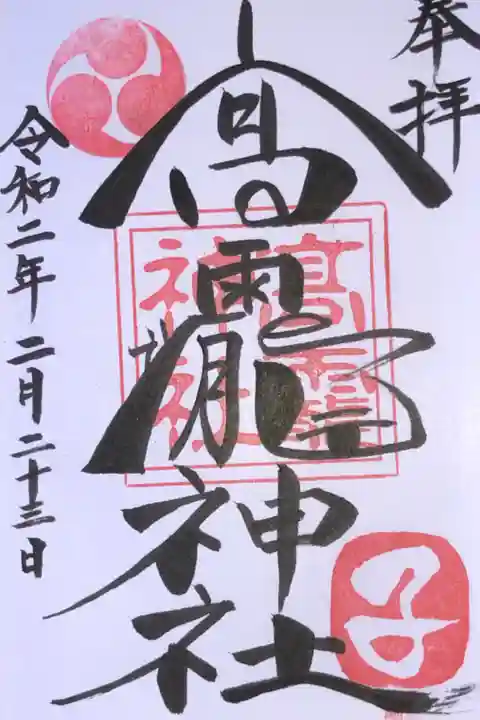 奉拝
高龗神社
高龗
神社
令和二年二月二十三日
子